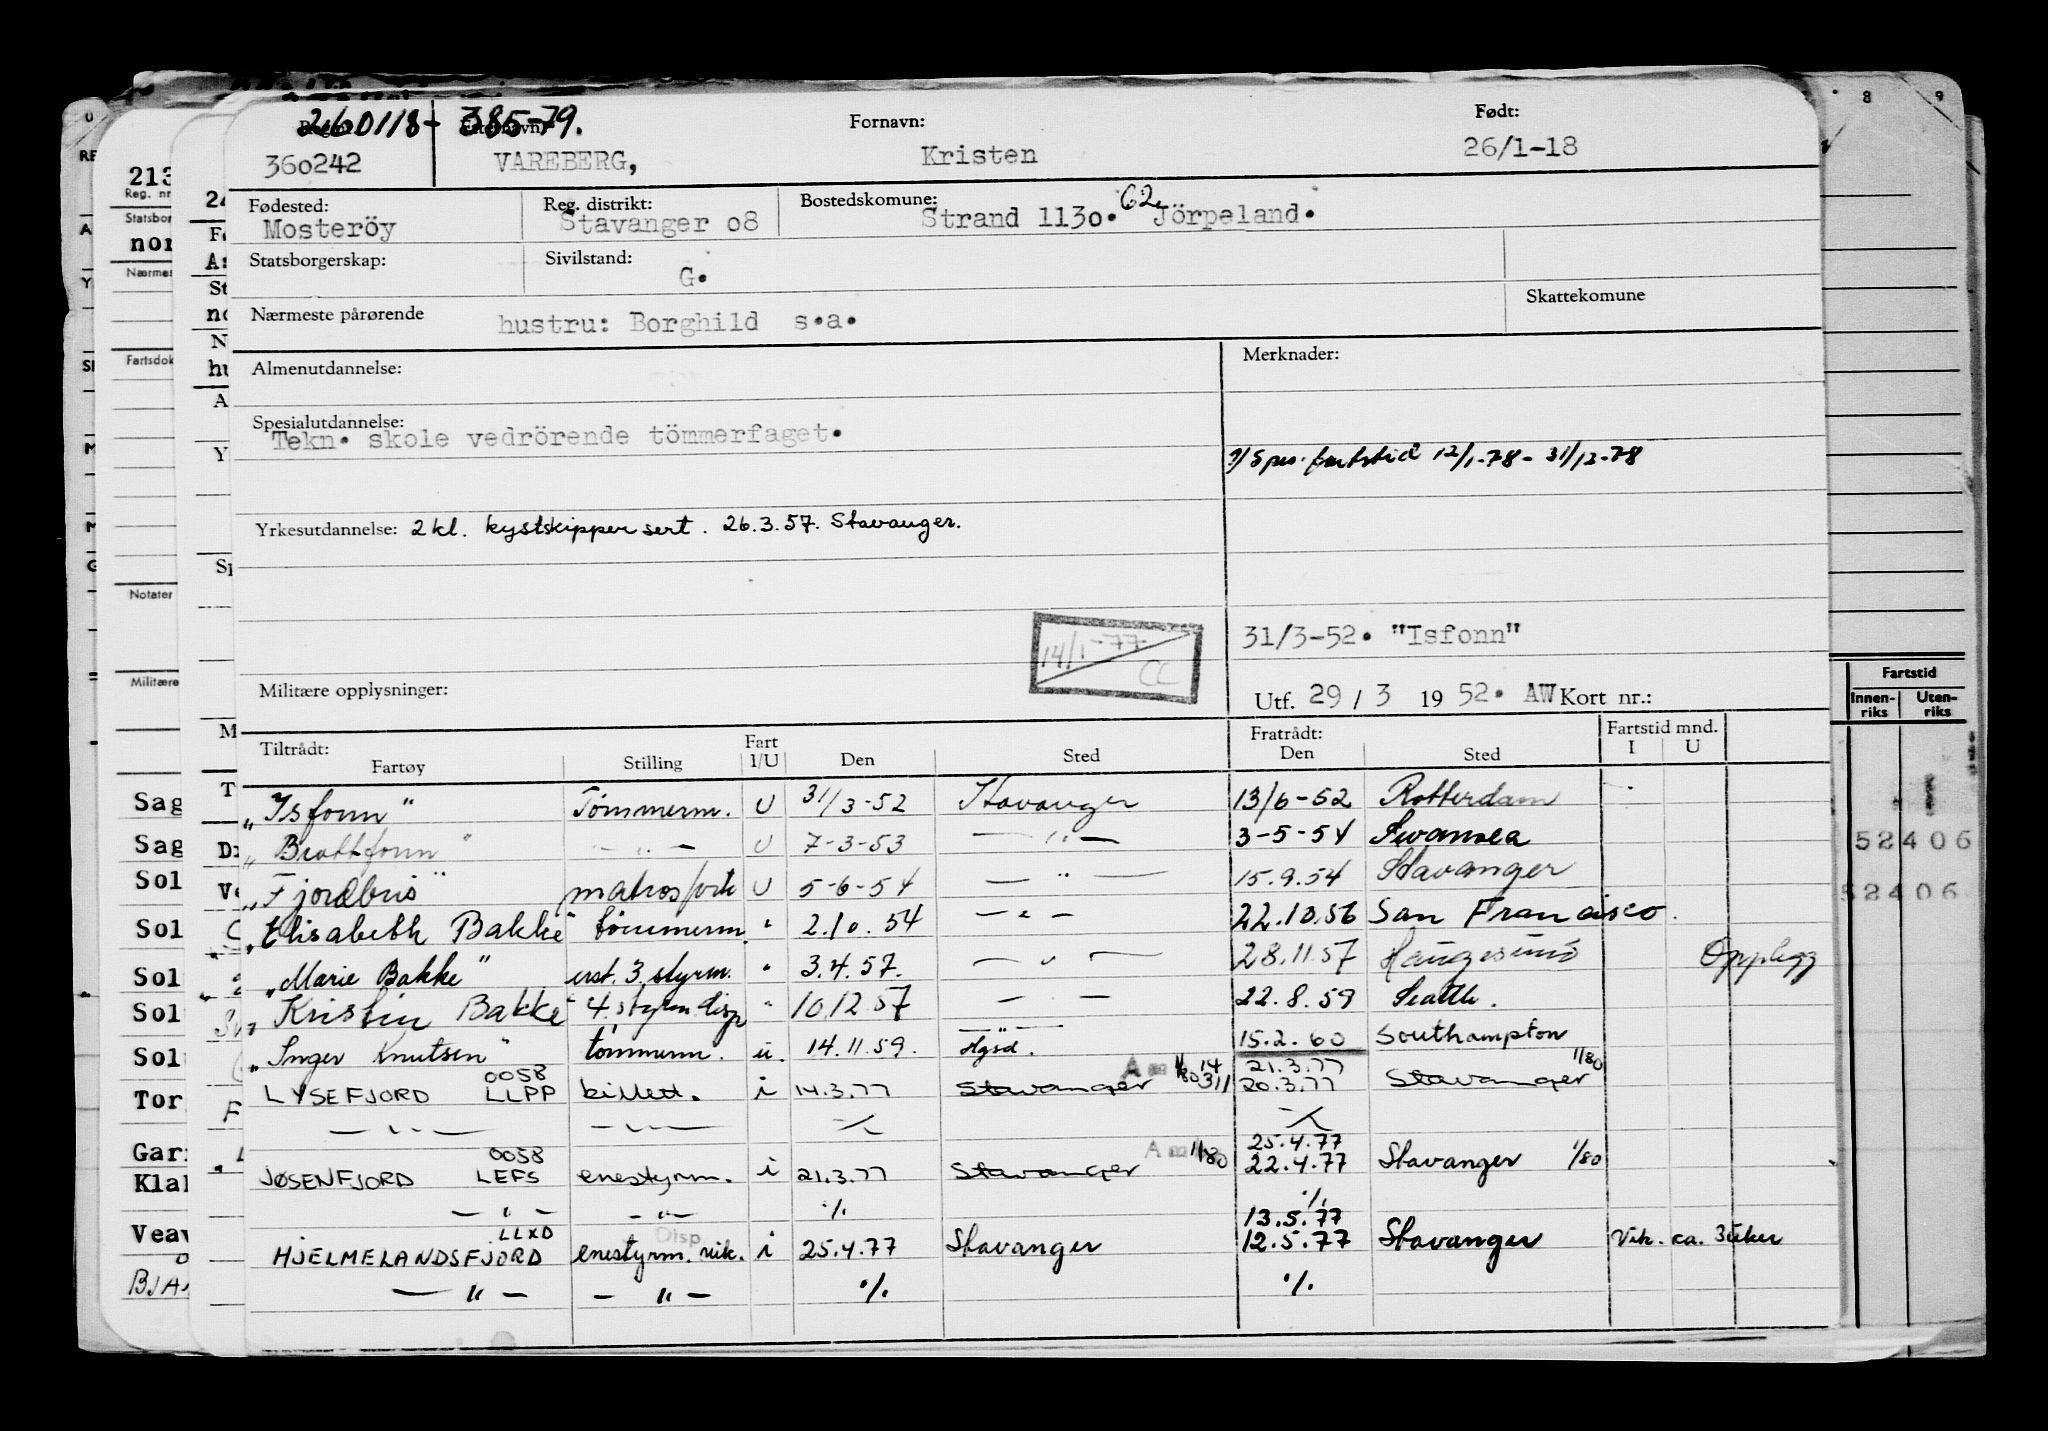 260118- 385-79.
Fornavn: Født:
360242 VAREBERG, Kristen 26/1-18
Fødested: Reg. distrikt: Bostedskomune: 62
Mosteröy Stavanger o8 Strand 113o. Jörpeland.
Statsborgerskap: Sivilstand: G.
Skattekomune
Nærmeste pårørende hustru: Borghild s.a.
Almenutdannelse: Merknader:
Spesialutdannelse:
Tekn. skole vedrörende tömmerfaget.
fartstid 12/1-78 - 31/12-78
Yrkesutdannelse: 2 kl. kystskippersert. 26.3.57. Stavanger.
14/1-77 CC
31/3-52. "Isfonn"
Militære opplysninger: Utf. 29 / 3 19 52. AW Kort nr.:
Tiltrådt: Fart Fratrådt: Fartstid mnd.
Fartøy Stilling I/U Den Sted Den Sted I U
„Isfonn" Tömmerm. U 31/3-52 Stavanger 13/6-52 Rotterdam
„Brattfonn" — „ — U 7-3-53 — „ — 3-5-54 Swansea
„Fjordbris" matros U 5-6-54 — „ — 15.9.54 Stavanger
„Elisabeth Bakke" tömmerm. " 2.10.54 — „ — 22.10.56 San Francisco.
„Marie Bakke" 3. styrm. " 3.4.57. — „ — 28.11.57 Haugesund Opplegg
„Kristin Bakke" 4. styrm. disp " 10.12.57 — „ — 22.8.59 Seattle.
„Inger Knutsen" tömmerm. u. 14.11.59. Hgsd. 15.2.60 Southampton
0058 21.3.77 1/80
LYSEFJORD LLPP billett. i 14.3.77 Stavanger 20.3.77 Stavanger
— „ — — „ — ·/.  ·/.
0058 1/80 25.4.77
JØSENFJORD LEFS enestyrm. i 21.3.77 Stavanger 22.4.77 Stavanger 1/80
— „ — — „ — ·/. ·/.
LLXD Disp. 13.5.77
HJELMELANDSFJORD enestyrm. vik. i 25.4.77 Stavanger 12.5.77 Stavanger Vik. ca. 3 uker
— „ — — „ — ·/. ·/.
213
Reg. nr
Notater
Militære
Sag
Sag
Sol
Sol
Sol
Sol
Sol
Tor
Gar
Klal
Veav
8 9
Fartstid
Innen-riks Uten-riks
52406
52406